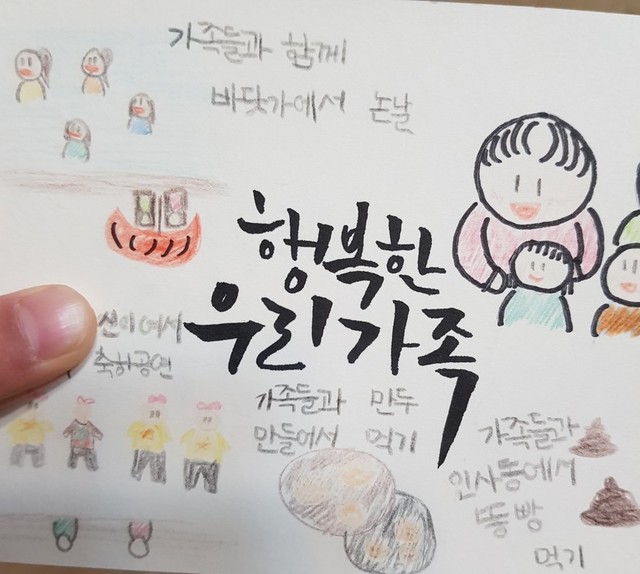 가족들과 함께
바닷가에서 논날
행복한
우리가족
선이여사
축하공연
가족들과 만두
만들어서 먹기
가족들과
인사동에서
똥빵
먹기